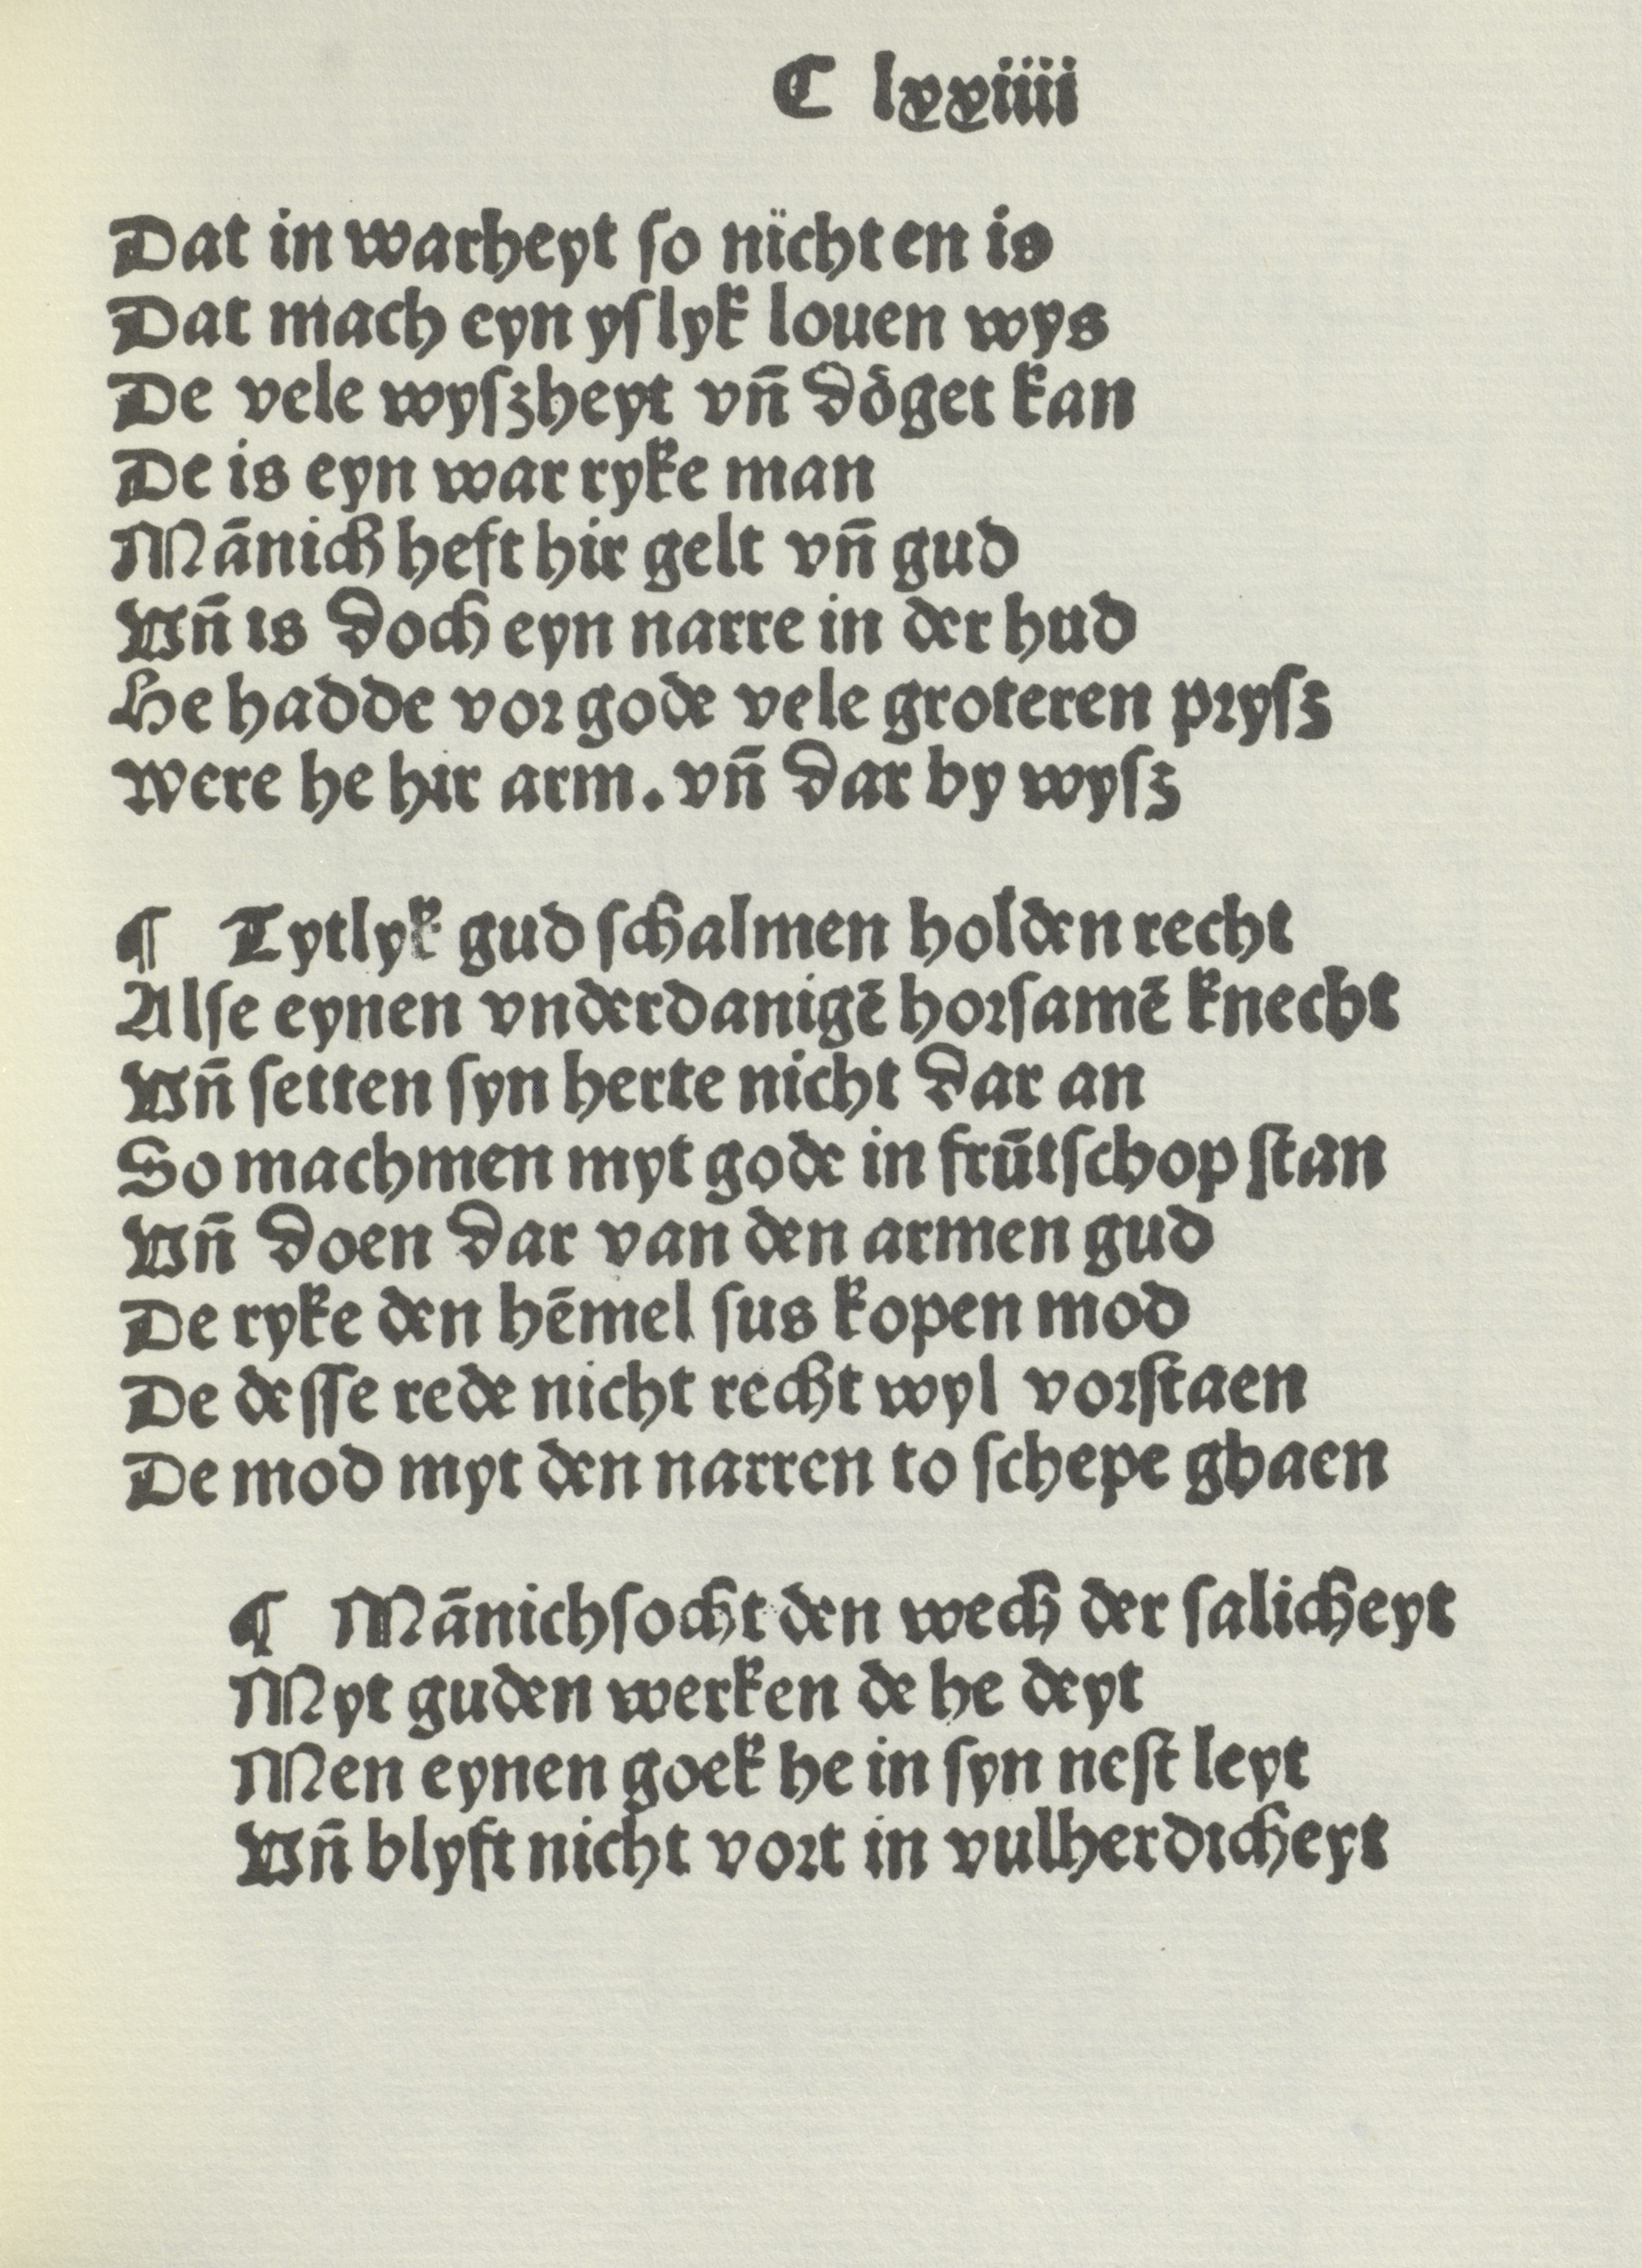 C lxxiiii
Dat in warheyt ſo nicht en is
Dat mach eyn yſlyk louen wys
De vele wyſzheyt vñ doͤget kan
De is eyn war ryke man
Mānich heft hir gelt vñ gud
Vñ is doch eyn narre in der hud
He hadde vor gode vele groteren pryſz
Were he hir arm. vñ dar by wyſz
¶ Tytlyk gud ſchalmen holden recht
Alſe eynen vnderdanigē horſamē knecht
Vñ ſetten ſyn herte nicht dar an
So machmen myt gode in frūtſchop ſtan
Vñ doen dar van den armen gud
De ryke den hēmel ſus kopen mod
De deſſe rede nicht recht wyl vorſtaen
De mod myt den narren to ſchepe ghaen
¶ Mānich ſocht den wech der ſalicheyt
Myt guden werken de he deyt
Men eynen goek he in ſyn neſt leyt
Vñ blyft nicht vort in vulherdicheyt